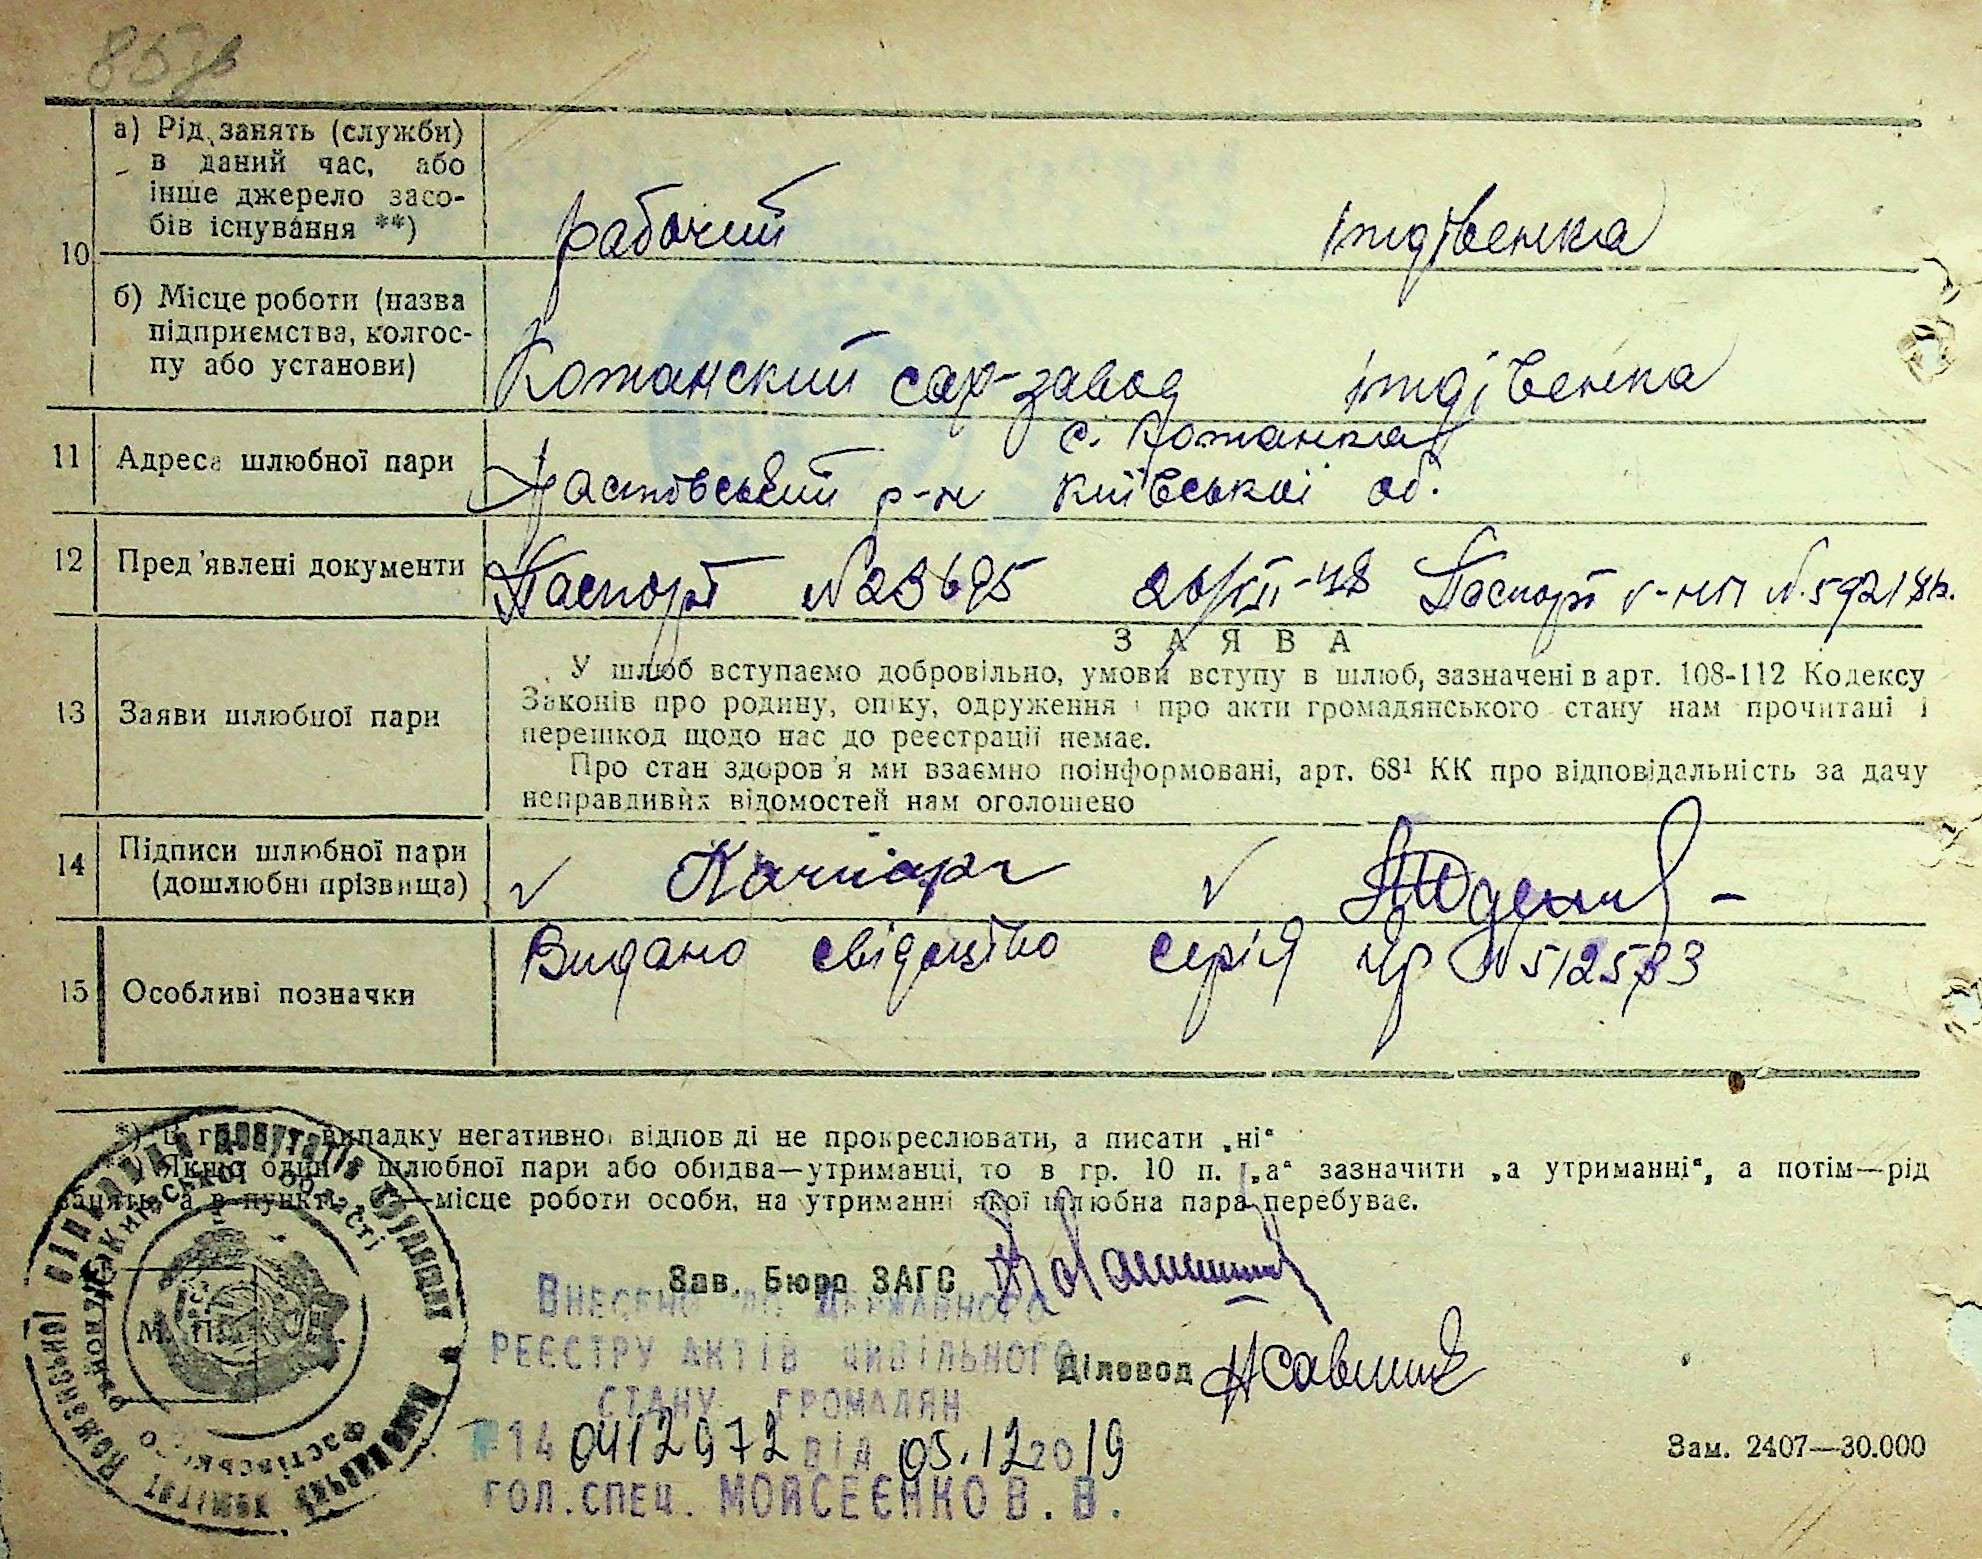 85
а) Рід занять (служби)
в даний час, або
інше джерело засо-
бів існування **)
рабочий іждівенка
10
б) Місце роботи (назва
підприємства, колгос-
пу або установи)
Кожанский сах-завод іждівенка
11 Адреса шлюбної пари
с. Кожанка
Фастовський р-н Київської об.
12 Пред'явлені документи
Паспорт № 23695 Паспорт № 592188.
13 Заяви шлюбної пари
ЗАЯВА
У шлюб вступаємо добровільно, умови вступу в шлюб, зазначені в арт. 108-112 Кодексу
Законів про родину, опіку, одруження і про акти громадянського стану нам прочитані і
перешкод щодо нас до реєстрації немає.
Про стан здоров'я ми взаємно поінформовані, арт. 68¹ КК про відповідальність за дачу
неправдивих відомостей нам оголошено
14 Підписи шлюбної пари
(дошлюбні прізвища)
15 Особливі позначки
Видано свідоцтво серія № 512573
*) В гр. випадку негативної відповіді не прокреслювати, а писати „ні“
**) Якщо один з шлюбної пари або обидва—утриманці, то в гр. 10 п. „а“ зазначити „а утриманні“, а потім—рід
занять, а в пункті —місце роботи особи, на утриманні якої шлюбна пара перебуває.
Зав. Бюро ЗАГС
М. П.
Діловод
Внесено до Державного
реєстру актів цивільного
стану громадян
№ 14 0412972 від 05.12 2019
гол.спец. Моисеєнко В. В.
Зам. 2407—30.000
Київської області
Фастівського району